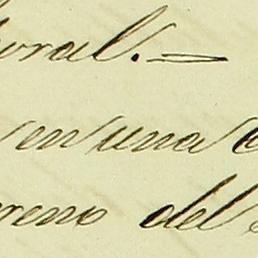 oral. —
en una
reno del